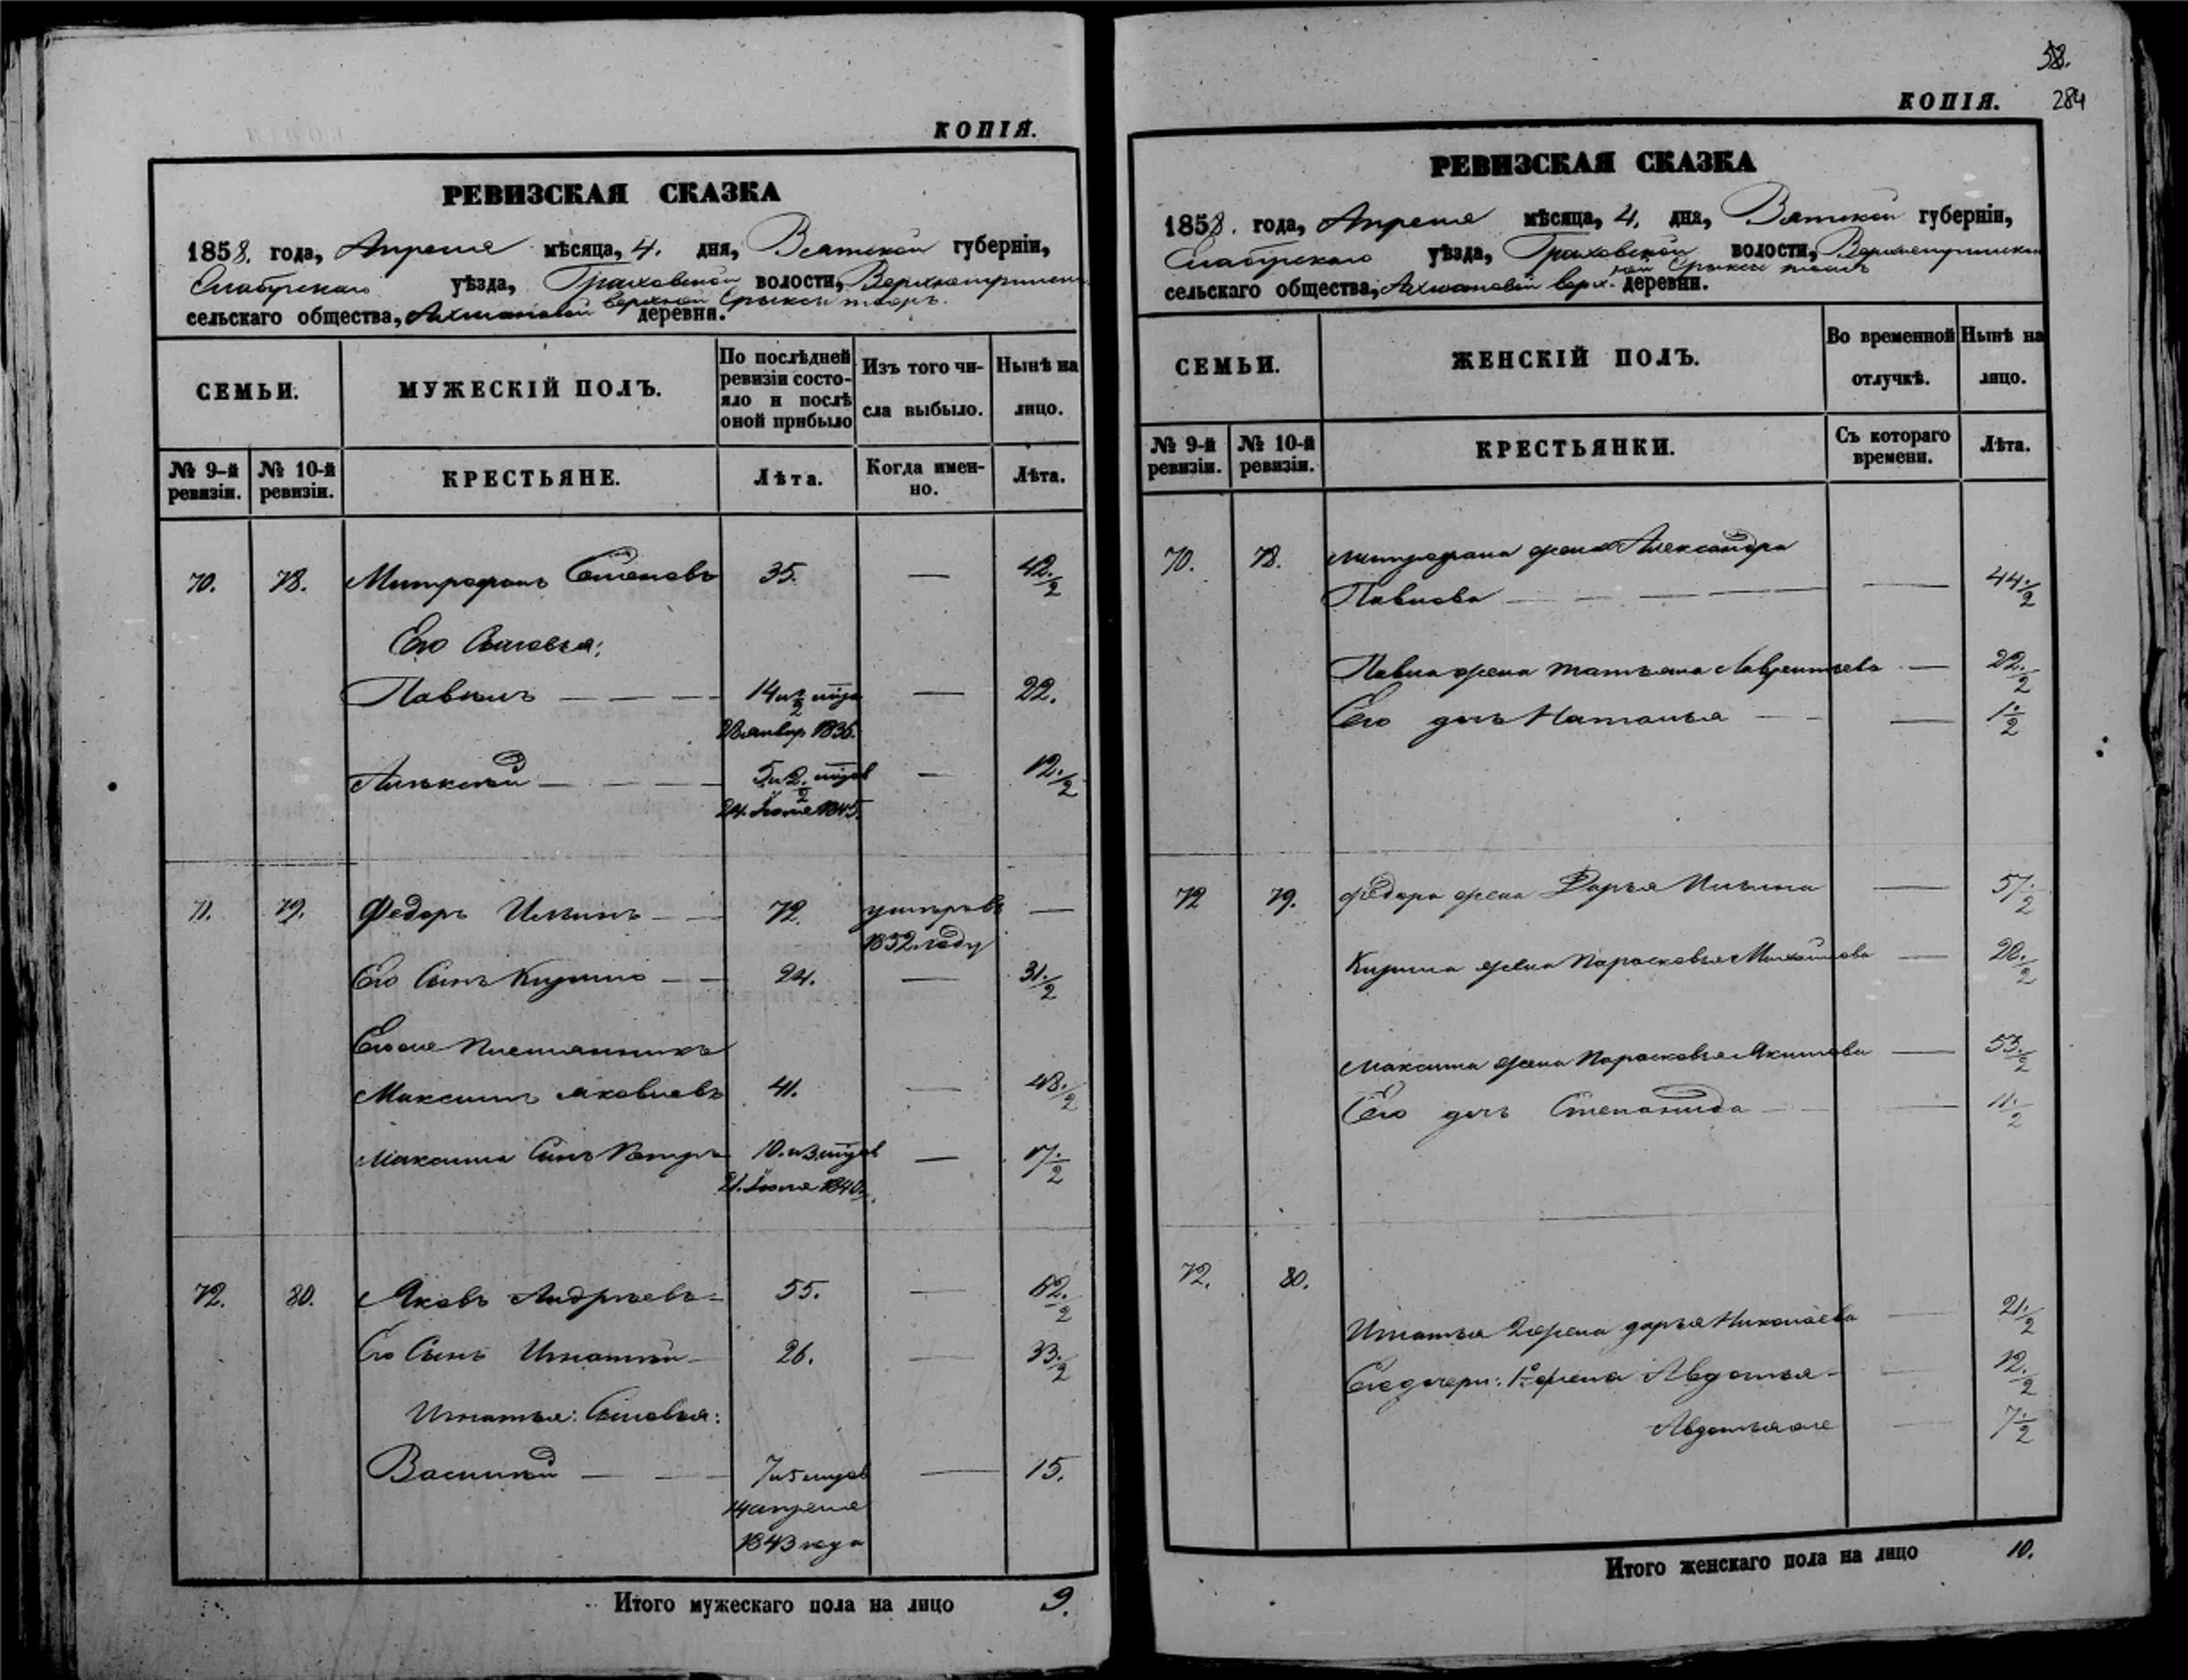 КОПІЯ.
РЕВИЗСКАЯ СКАЗКА
1858. года, Апреля мѣсяца, 4. дня, Вятской губерніи,
Елабугскаго уѣзда, Граховской волости,
сельскаго общества, деревни.
СЕМЬИ.
МУЖЕСКІЙ ПОЛЪ.
По послѣдней ревизіи состояло и послѣ оной прибыло
Изъ того числа выбыло.
Нынѣ на лицо.
№ 9-й ревизіи.
№ 10-й ревизіи.
КРЕСТЬЯНЕ.
Лѣта.
Когда именно.
Лѣта.
70. 78. Митрофанъ Семеновъ 35. — 42 1/2
Его Сыновья:
Павелъ — — — 14 — 22.
28 январ 1836.
Алексѣй — — — — 12 1/2
24. Іюня 1845.
71. 79. Федоръ Ильинъ — — 72. умеръ въ —
1852 году
Его Сынъ Кирило — — 24. — 31 1/2
Его же племянникъ
Максимъ Яковлевъ 41. — 48 1/2
Максима Сынъ Петръ 10 — 17 1/2
21. 1840
72. 80. Яковъ Андреевъ — 55. — 62 1/2
Его Сынъ Игнатий — 26. — 33 1/2
Игнатья: Сыновья:
Василий — — 7 — 15.
14 апреля
1843 года
Итого мужескаго пола на лицо 9.
58.
284
КОПІЯ.
РЕВИЗСКАЯ СКАЗКА
1858. года, Апреля мѣсяца, 4. дня, Вятской губерніи,
Елабугскаго уѣзда, Граховской волости,
сельскаго общества, деревни.
СЕМЬИ.
ЖЕНСКІЙ ПОЛЪ.
Во временной отлучкѣ.
Нынѣ на лицо.
№ 9-й ревизіи.
№ 10-й ревизіи.
КРЕСТЬЯНКИ.
Съ котораго времени.
Лѣта.
70. 78. Митрофана жена Александра
Павлова — — — — — 44 1/2
Павла жена Татьяна Лаврентьева — 22 1/2
Его дочь Наталья — — — 1 1/2
72 79. Федора жена Дарья Ильина — 57 1/2
Кирила жена Парасковья Михайлова — 28 1/2
Максима жена Парасковья Якимова — 53 1/2
Его дочь Степанида — — 11 1/2
72. 80.
Игнатья 2 жена Дарья Николаева — 21 1/2
Его дочери: 1й жена Авдотья — — 12 1/2
Авдотья же — 7 1/2
Итого женскаго пола на лицо 10.